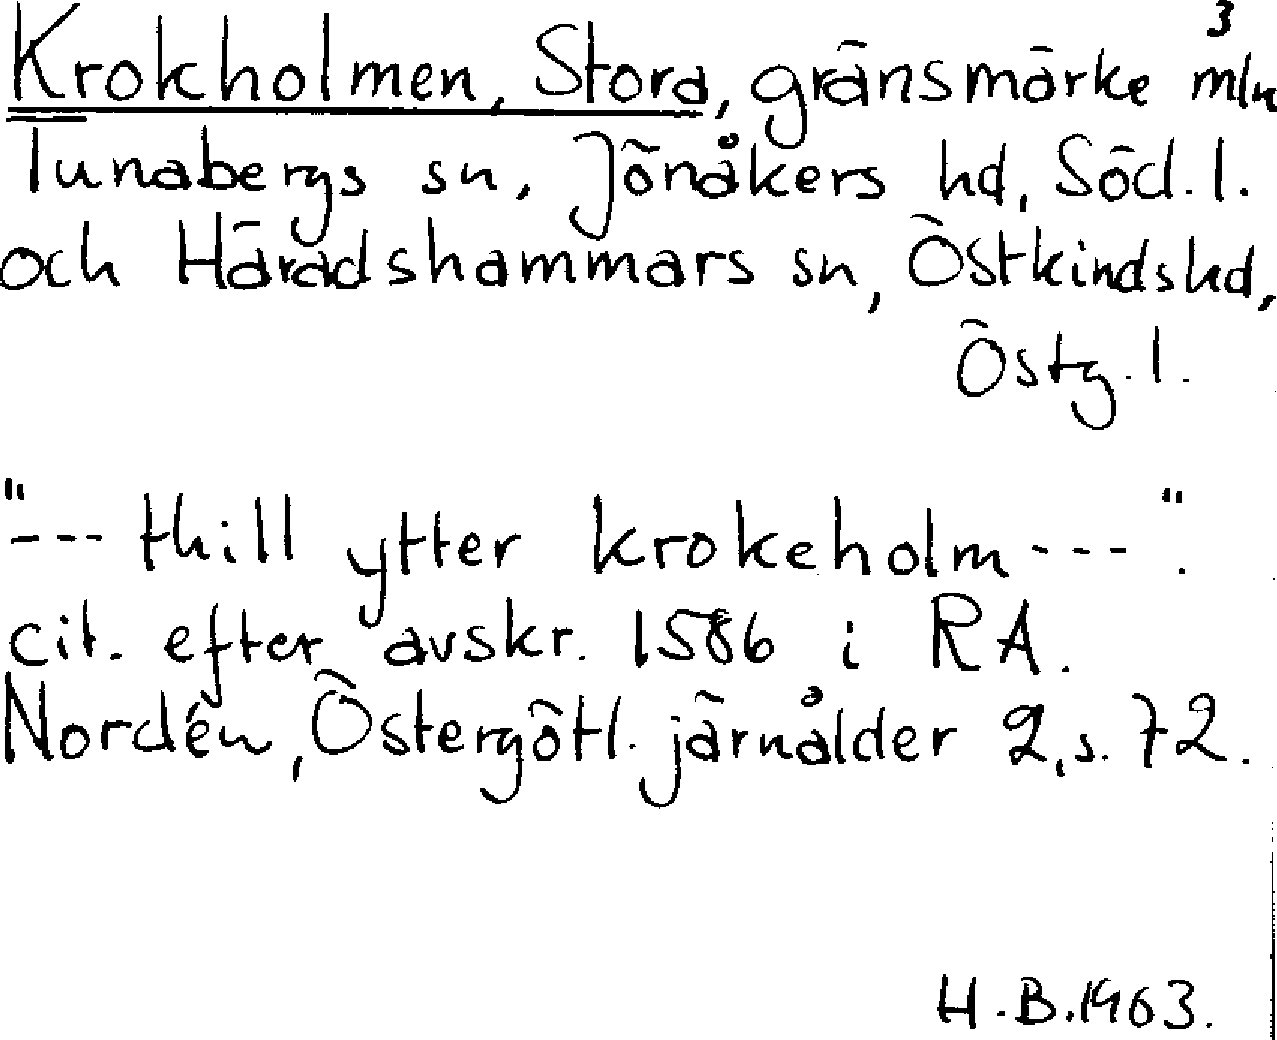 3
Krokholmen, Stora, gränsmärke mln
Tunabergs sn, Jönåkers hd, Söd.l.
och Häradshammars sn, Östkinds hd,
Östg.l.
"--- thill ytter krokeholm ---".
cit. efter avskr. 1586 i RA.
Nordén, Östergötl. järnålder 2, s. 72.
H.B. 1963.